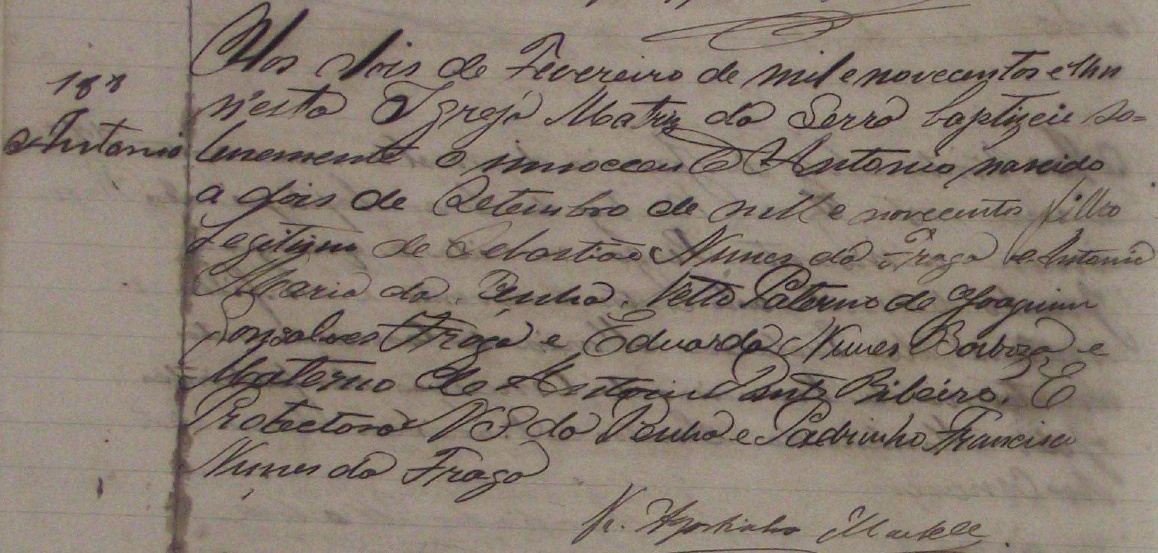 Aos dois de Fevereiro de mil e novecentos e Um
188
n'esta Igreja Matriz da Serra baptizei so=
Antonio
lenemente o innocente Antonio nascido
a dois de Setembro de mil e novecentos filho
Legitimo de Sebastião Nunes da Fraga e Antonia
Maria da Penha. Netto Paterno de Joaquim
Gonsalves Fraga e Eduarda Nunes Barboza, e
Materno de Antonio Pinto Ribeiro. E
Protectora N S. da Penha e Padrinho Francisco
Nunes da Fraga